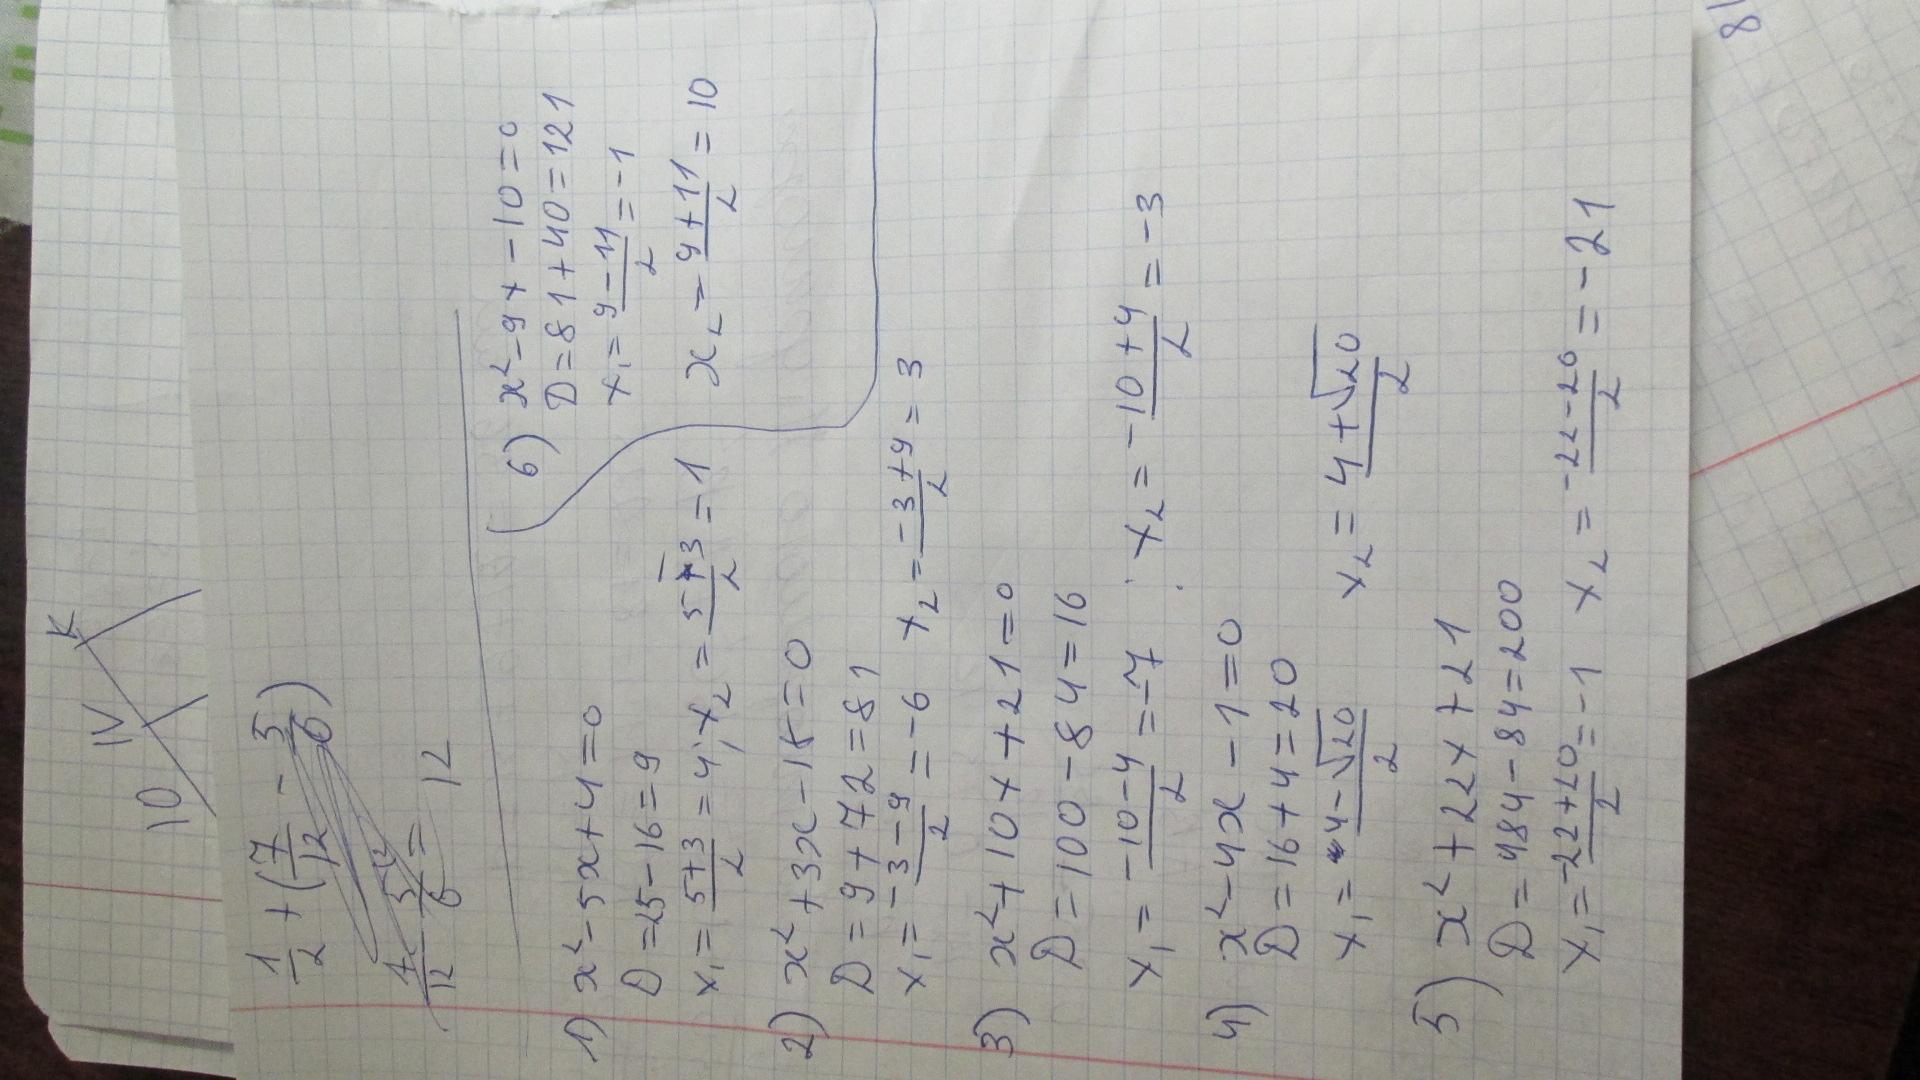 K
IV
10
1/2 + (7/12 - 5/6)
12
1) x² - 5x + 4 = 0
D = 25 - 16 = 9
x₁ = (5+3)/2 = 4; x₂ = (5-3)/2 = 1
2) x² + 3x - 18 = 0
D = 9 + 72 = 81
x₁ = (-3-9)/2 = -6 x₂ = (-3+9)/2 = 3
3) x² + 10x + 21 = 0
D = 100 - 84 = 16
x₁ = (-10-4)/2 = -7 ; x₂ = (-10+4)/2 = -3
4) x² - 4x - 1 = 0
D = 16 + 4 = 20
x₁ = (4-√20)/2 x₂ = (4+√20)/2
5) x² + 22x + 21
D = 484 - 84 = 200
x₁ = (-22+20)/2 = -1 x₂ = (-22-20)/2 = -21
6) x² - 9x - 10 = 0
D = 81 + 40 = 121
x₁ = (9-11)/2 = -1
x₂ = (9+11)/2 = 10